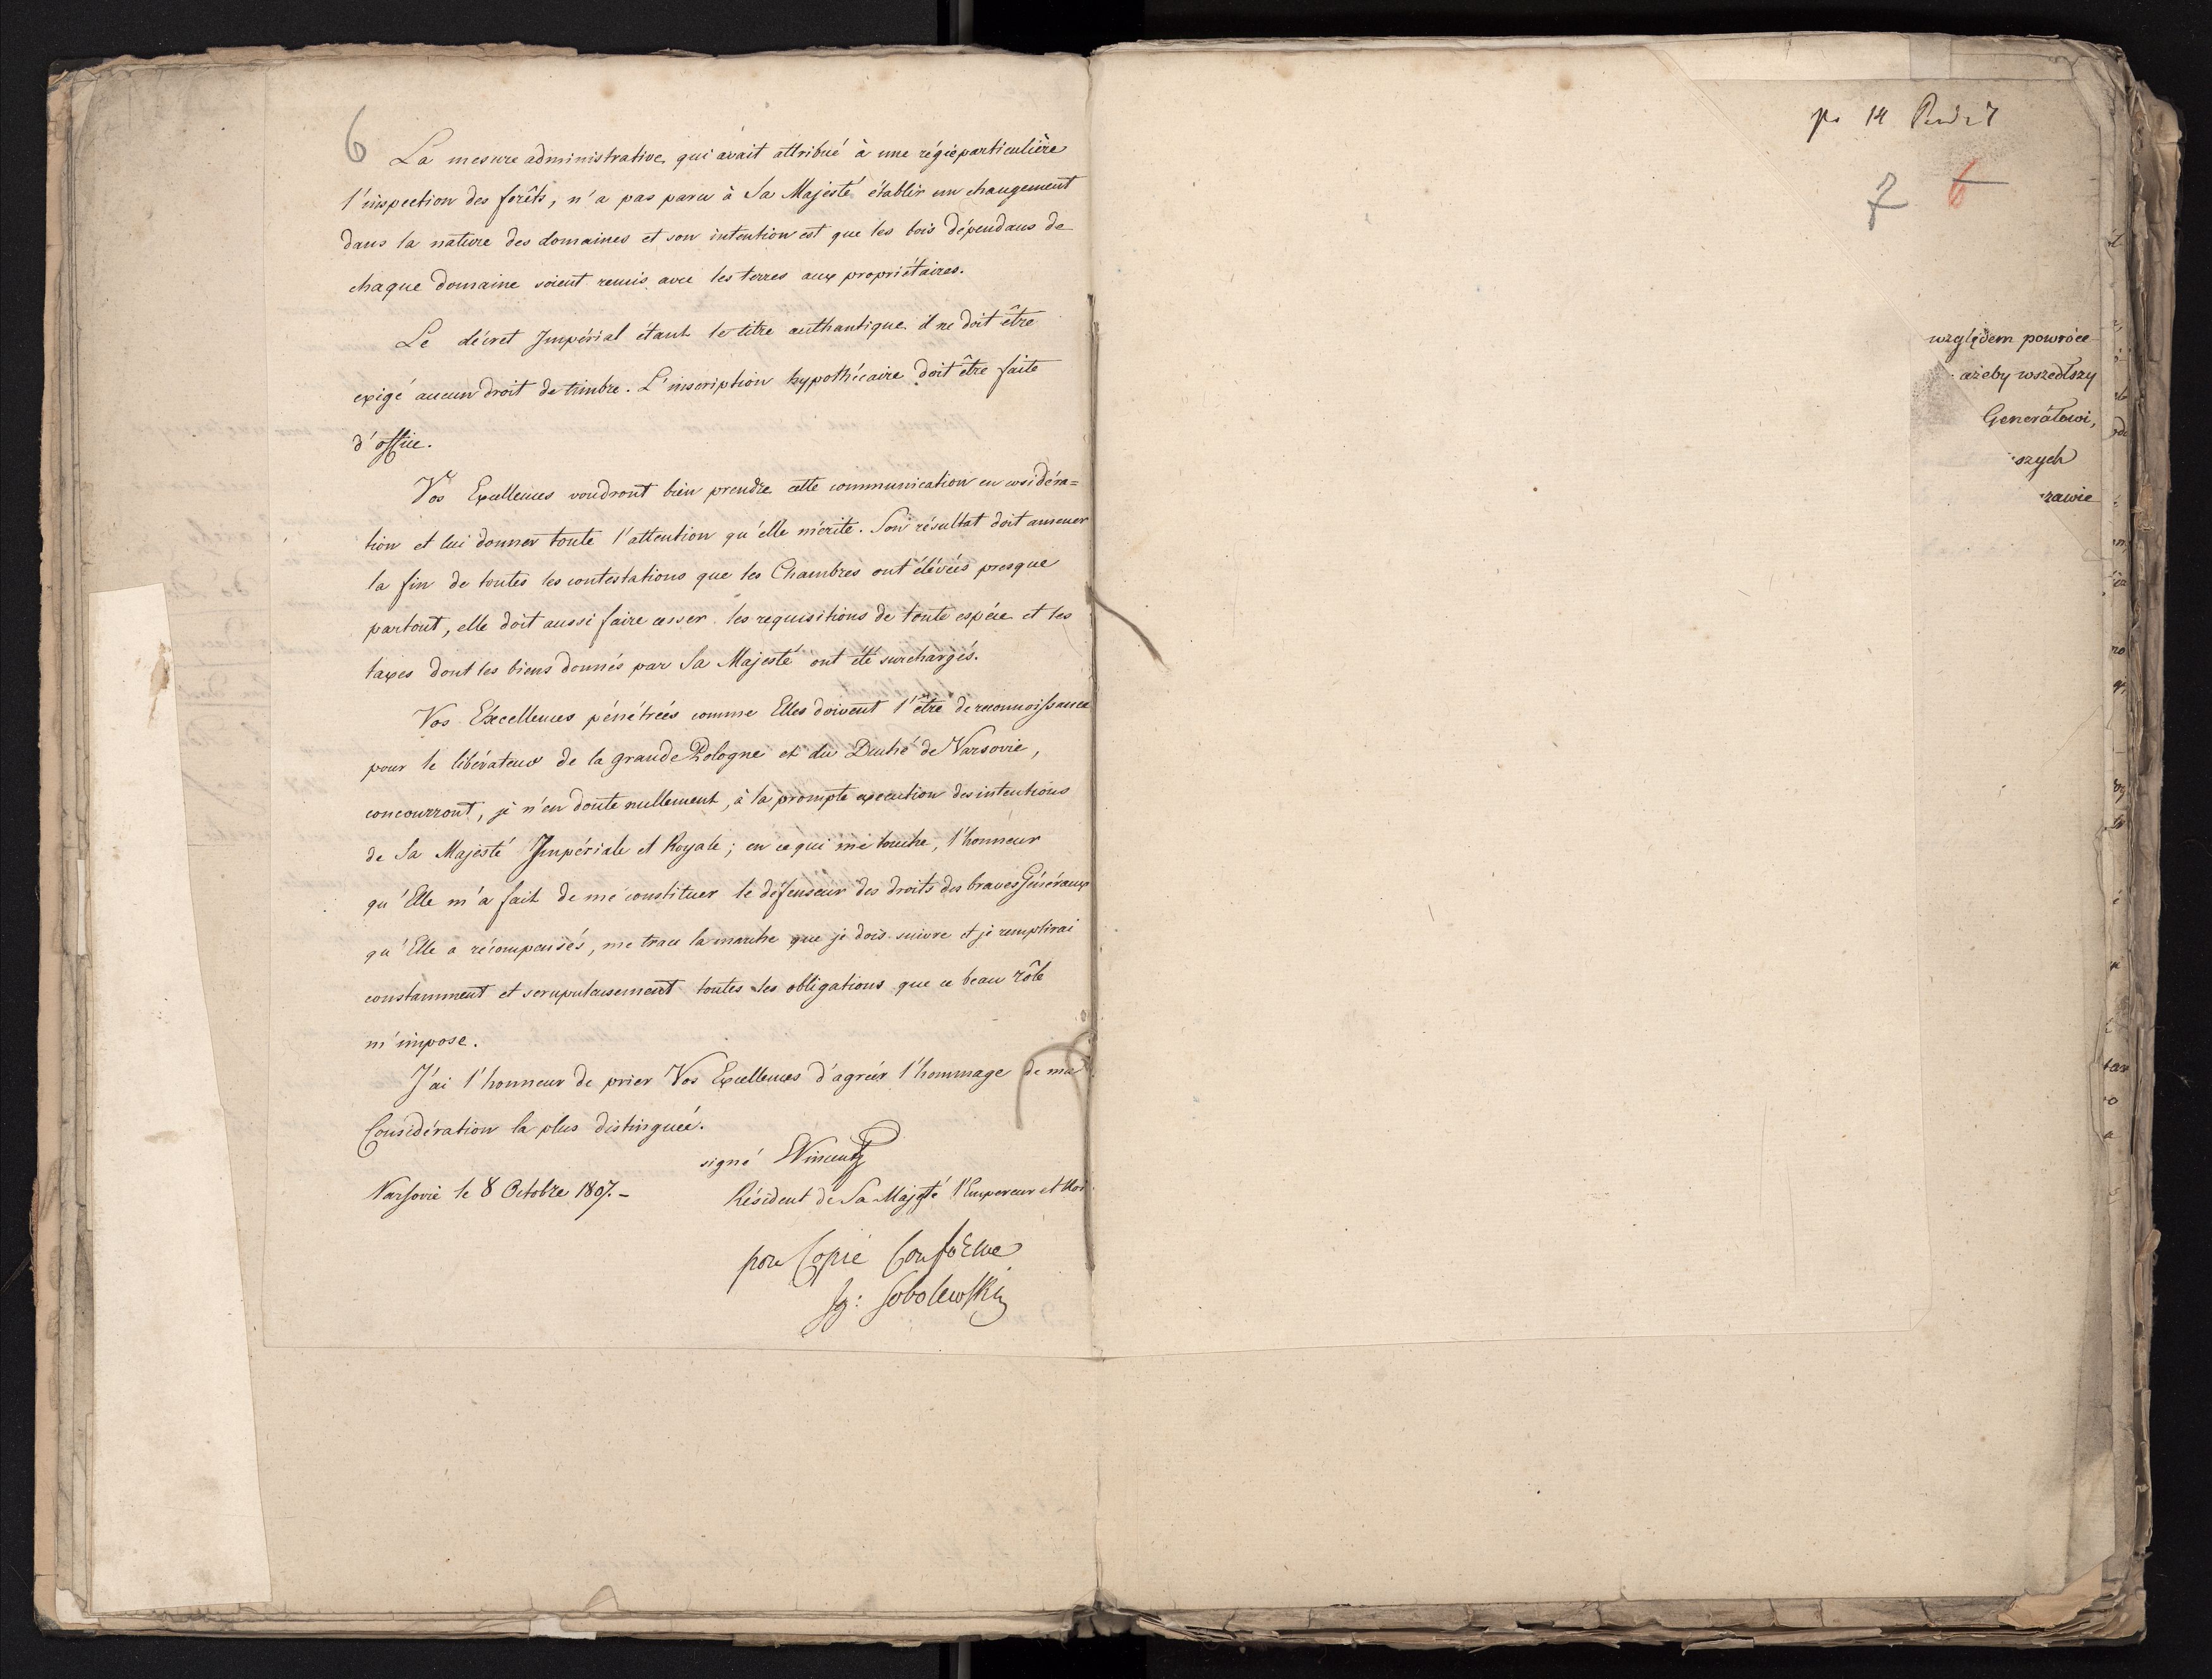 6
La mesure administrative, qui avait attribué à une régie particulière
l'inspection des forêts, n'a pas paru à Sa Majesté établir un changement
dans la nature des domaines et son intention est que les bois dépendans de
chaque domaine soient remis avec les terres aux propriétaires.
Le décret Impérial étant le titre authantique il ne doit être
exigé aucun droit de timbre. L'inscription hypothécaire doit être faite
d'office.
Vos Excellences voudront bien prendre cette communication en cosidéra=
tion et lui donner toute l'attention qu'elle mérite. Son résultat doit amener
la fin de toutes les contestations que les Chambres ont élévées presque
partout, elle doit aussi faire cesser les requisitions de toute espéce et les
taxes dont les biens donnés par Sa Majesté ont été surchargés.
Vos Excellences pénétrées comme Elles doivent l'être de reconnoissance
pour le libérateur de la grande Pologne et du Duché de Varsovie,
concourront, je n'en doute nullement, à la prompte execution des intentions
de Sa Majesté Impériale et Royale; en ce qui me touche, l'honneur
qu'Elle m'a fait de me constituer le défenseur des droits des braves Généraux
qu'Elle a récompensés, me trace la marche que je dois suivre et je remplirai
constamment et scrupuleusement toutes les obligations que ce beau rôle
m'impose.
J'ai l'honneur de prier Vos Excellences d'agréer l'hommage de ma
Considération la plus distinguée.
signé Vincent
Varsovie le 8 Octobre 1807.-
Résident de Sa Majesté l'Empereur et Roi
pour Copie Conforme
Sg: Sobolewski
14
7 6
względem powróce
ażeby wszedłszy
Generałowi,
szych
zawie